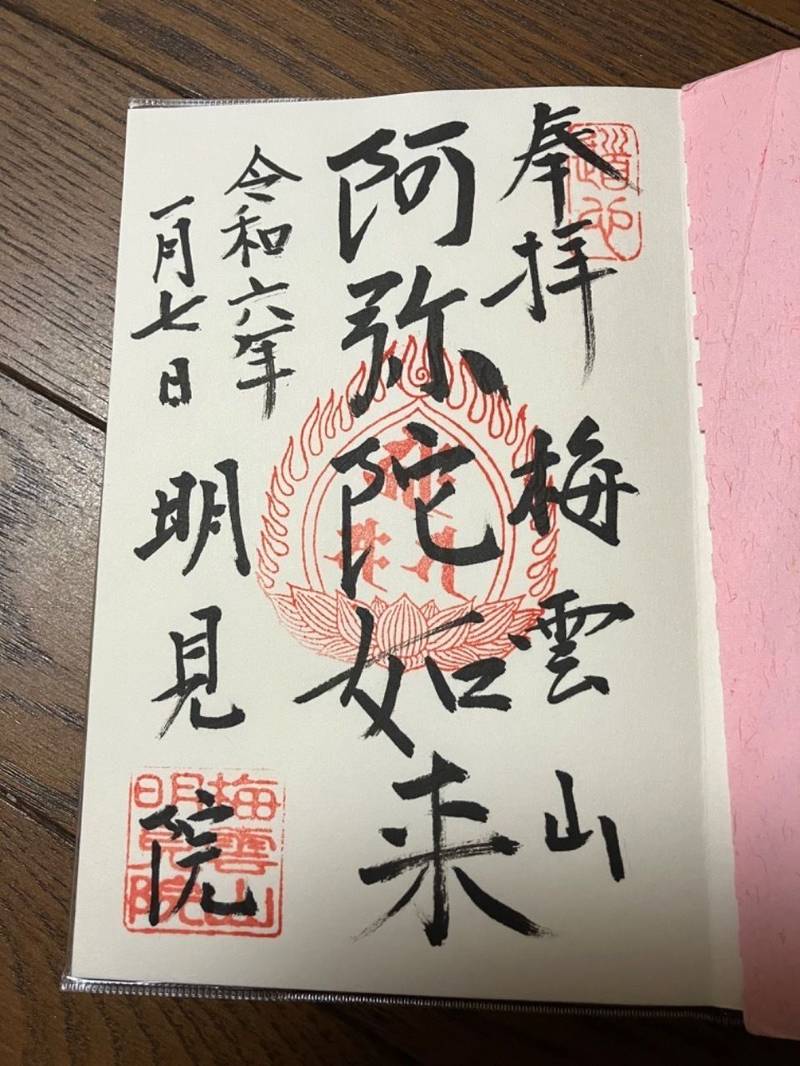 奉拝 梅雲山
阿弥陀如来
令和六年
一月七日 明見院
梅雲山
明見院